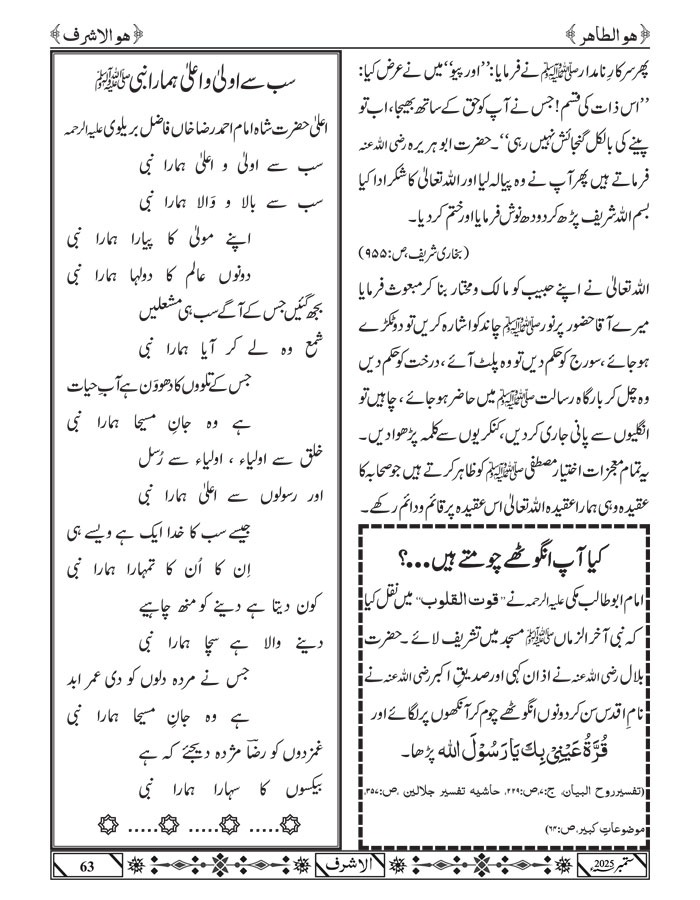 ﴿هو الطاهر﴾
﴿هو الاشرف﴾
پھر سرکارِ نامدار ﷺ نے فرمایا: ’’اور پیو‘‘ میں نے عرض کیا:
’’اس ذات کی قسم! جس نے آپ کو حق کے ساتھ بھیجا، اب تو
پینے کی بالکل گنجائش نہیں رہی‘‘۔ حضرت ابو ہریرہ رضی اللہ عنہ
فرماتے ہیں پھر آپ نے وہ پیالہ لیا اور اللہ تعالیٰ کا شکر ادا کیا
بسم اللہ شریف پڑھ کر دودھ نوش فرمایا اور ختم کر دیا۔
(بخاری شریف، ص: ۹۵۵)
اللہ تعالیٰ نے اپنے حبیب کو مالک و مختار بنا کر مبعوث فرمایا
میرے آقا حضور پر نور ﷺ چاند کو اشارہ کریں تو دو ٹکڑے
ہو جائے، سورج کو حکم دیں تو وہ پلٹ آئے، درخت کو حکم دیں
وہ چل کر بارگاہ رسالت ﷺ میں حاضر ہو جائے، چاہیں تو
انگلیوں سے پانی جاری کر دیں، کنکریوں سے کلمہ پڑھوا دیں۔
یہ تمام معجزات اختیار مصطفی ﷺ کو ظاہر کرتے ہیں جو صحابہ کا
عقیدہ وہی ہمارا عقیدہ اللہ تعالیٰ اس عقیدہ پر قائم و دائم رکھے۔
کیا آپ انگوٹھے چومتے ہیں...؟
امام ابوطالب مکی علیہ الرحمہ نے "قوت القلوب" میں نقل کیا
کہ نبی آخر الزماں ﷺ مسجد میں تشریف لائے۔ حضرت
بلال رضی اللہ عنہ نے اذان کہی اور صدیقِ اکبر رضی اللہ عنہ نے
نامِ اقدس سن کر دونوں انگوٹھے چوم کر آنکھوں پر لگائے اور
قُرَّةُ عَيْنِيْ بِكَ يَا رَسُوْلَ الله پڑھا۔
(تفسیر روح البیان، ج: ۷، ص: ۲۲۹، حاشیہ تفسیر جلالین، ص: ۳۵۷،
موضوعاتِ کبیر، ص: ۶۳)
سب سے اولیٰ و اعلیٰ ہمارا نبی ﷺ
اعلیٰ حضرت شاہ امام احمد رضا خاں فاضل بریلوی علیہ الرحمہ
سب سے اولیٰ و اعلیٰ ہمارا نبی
سب سے بالا و وَالا ہمارا نبی
اپنے مولیٰ کا پیارا ہمارا نبی
دونوں عالم کا دولہا ہمارا نبی
بجھ گئیں جس کے آگے سب ہی مشعلیں
شمع وہ لے کر آیا ہمارا نبی
جس کے تلووں کا دھووَن ہے آبِ حیات
ہے وہ جانِ مسیحا ہمارا نبی
خلق سے اولیاء ، اولیاء سے رُسل
اور رسولوں سے اعلیٰ ہمارا نبی
جیسے سب کا خدا ایک ہے ویسے ہی
اِن کا اُن کا تمہارا ہمارا نبی
کون دیتا ہے دینے کو منھ چاہیے
دینے والا ہے سچا ہمارا نبی
جس نے مردہ دلوں کو دی عمر ابد
ہے وہ جانِ مسیحا ہمارا نبی
غمزدوں کو رضاؔ مژدہ دیجئے کہ ہے
بیکسوں کا سہارا ہمارا نبی
ستمبر 2025
الاشرف
63